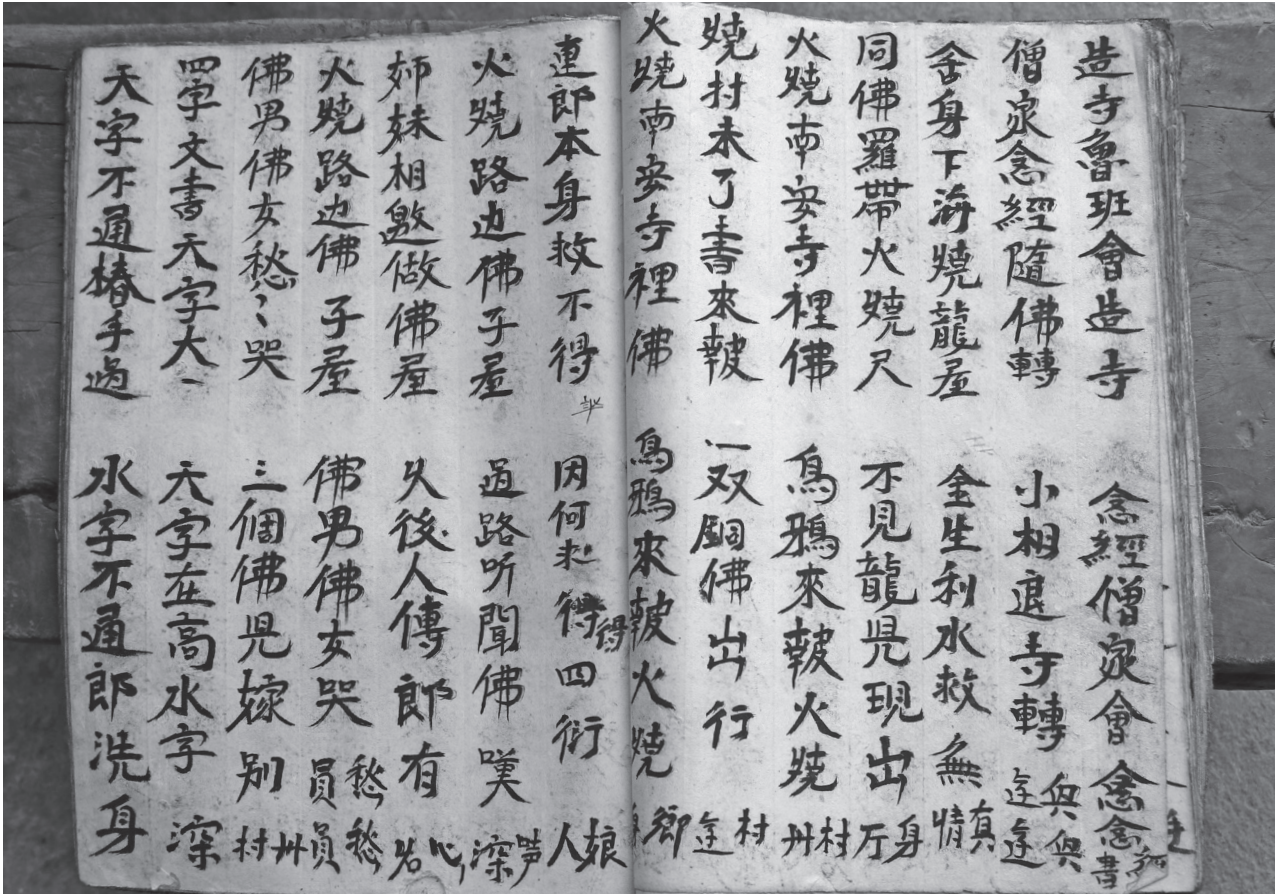 造寺魯班會造寺 念經僧家會念念書
僧家念經隨佛轉 小相退寺轉 與與
舍身下海燒龍屋 金生利水救無情 真
同佛羅帶火燒尺 不見龍兒現出厅 身
火燒南安寺裡佛 烏鴉來報火燒州 村
燒村未了書來報 一双銅佛出行 村
火燒南安寺裡佛 烏鴉來報火燒 鄉
連郎本身救不得 因何求得得四衍人 娘
火燒路边佛子屋 過路听聞佛嘆深
姉妹相邀做佛屋 久後人傳郎有名 心
火燒路边佛子屋 佛男佛女哭員員 愁愁
佛男佛女愁〻哭 三個佛兒嫁別村 州
四字文書天字大 天字在高水字深
天字不通椿手過 水字不通郎洗身